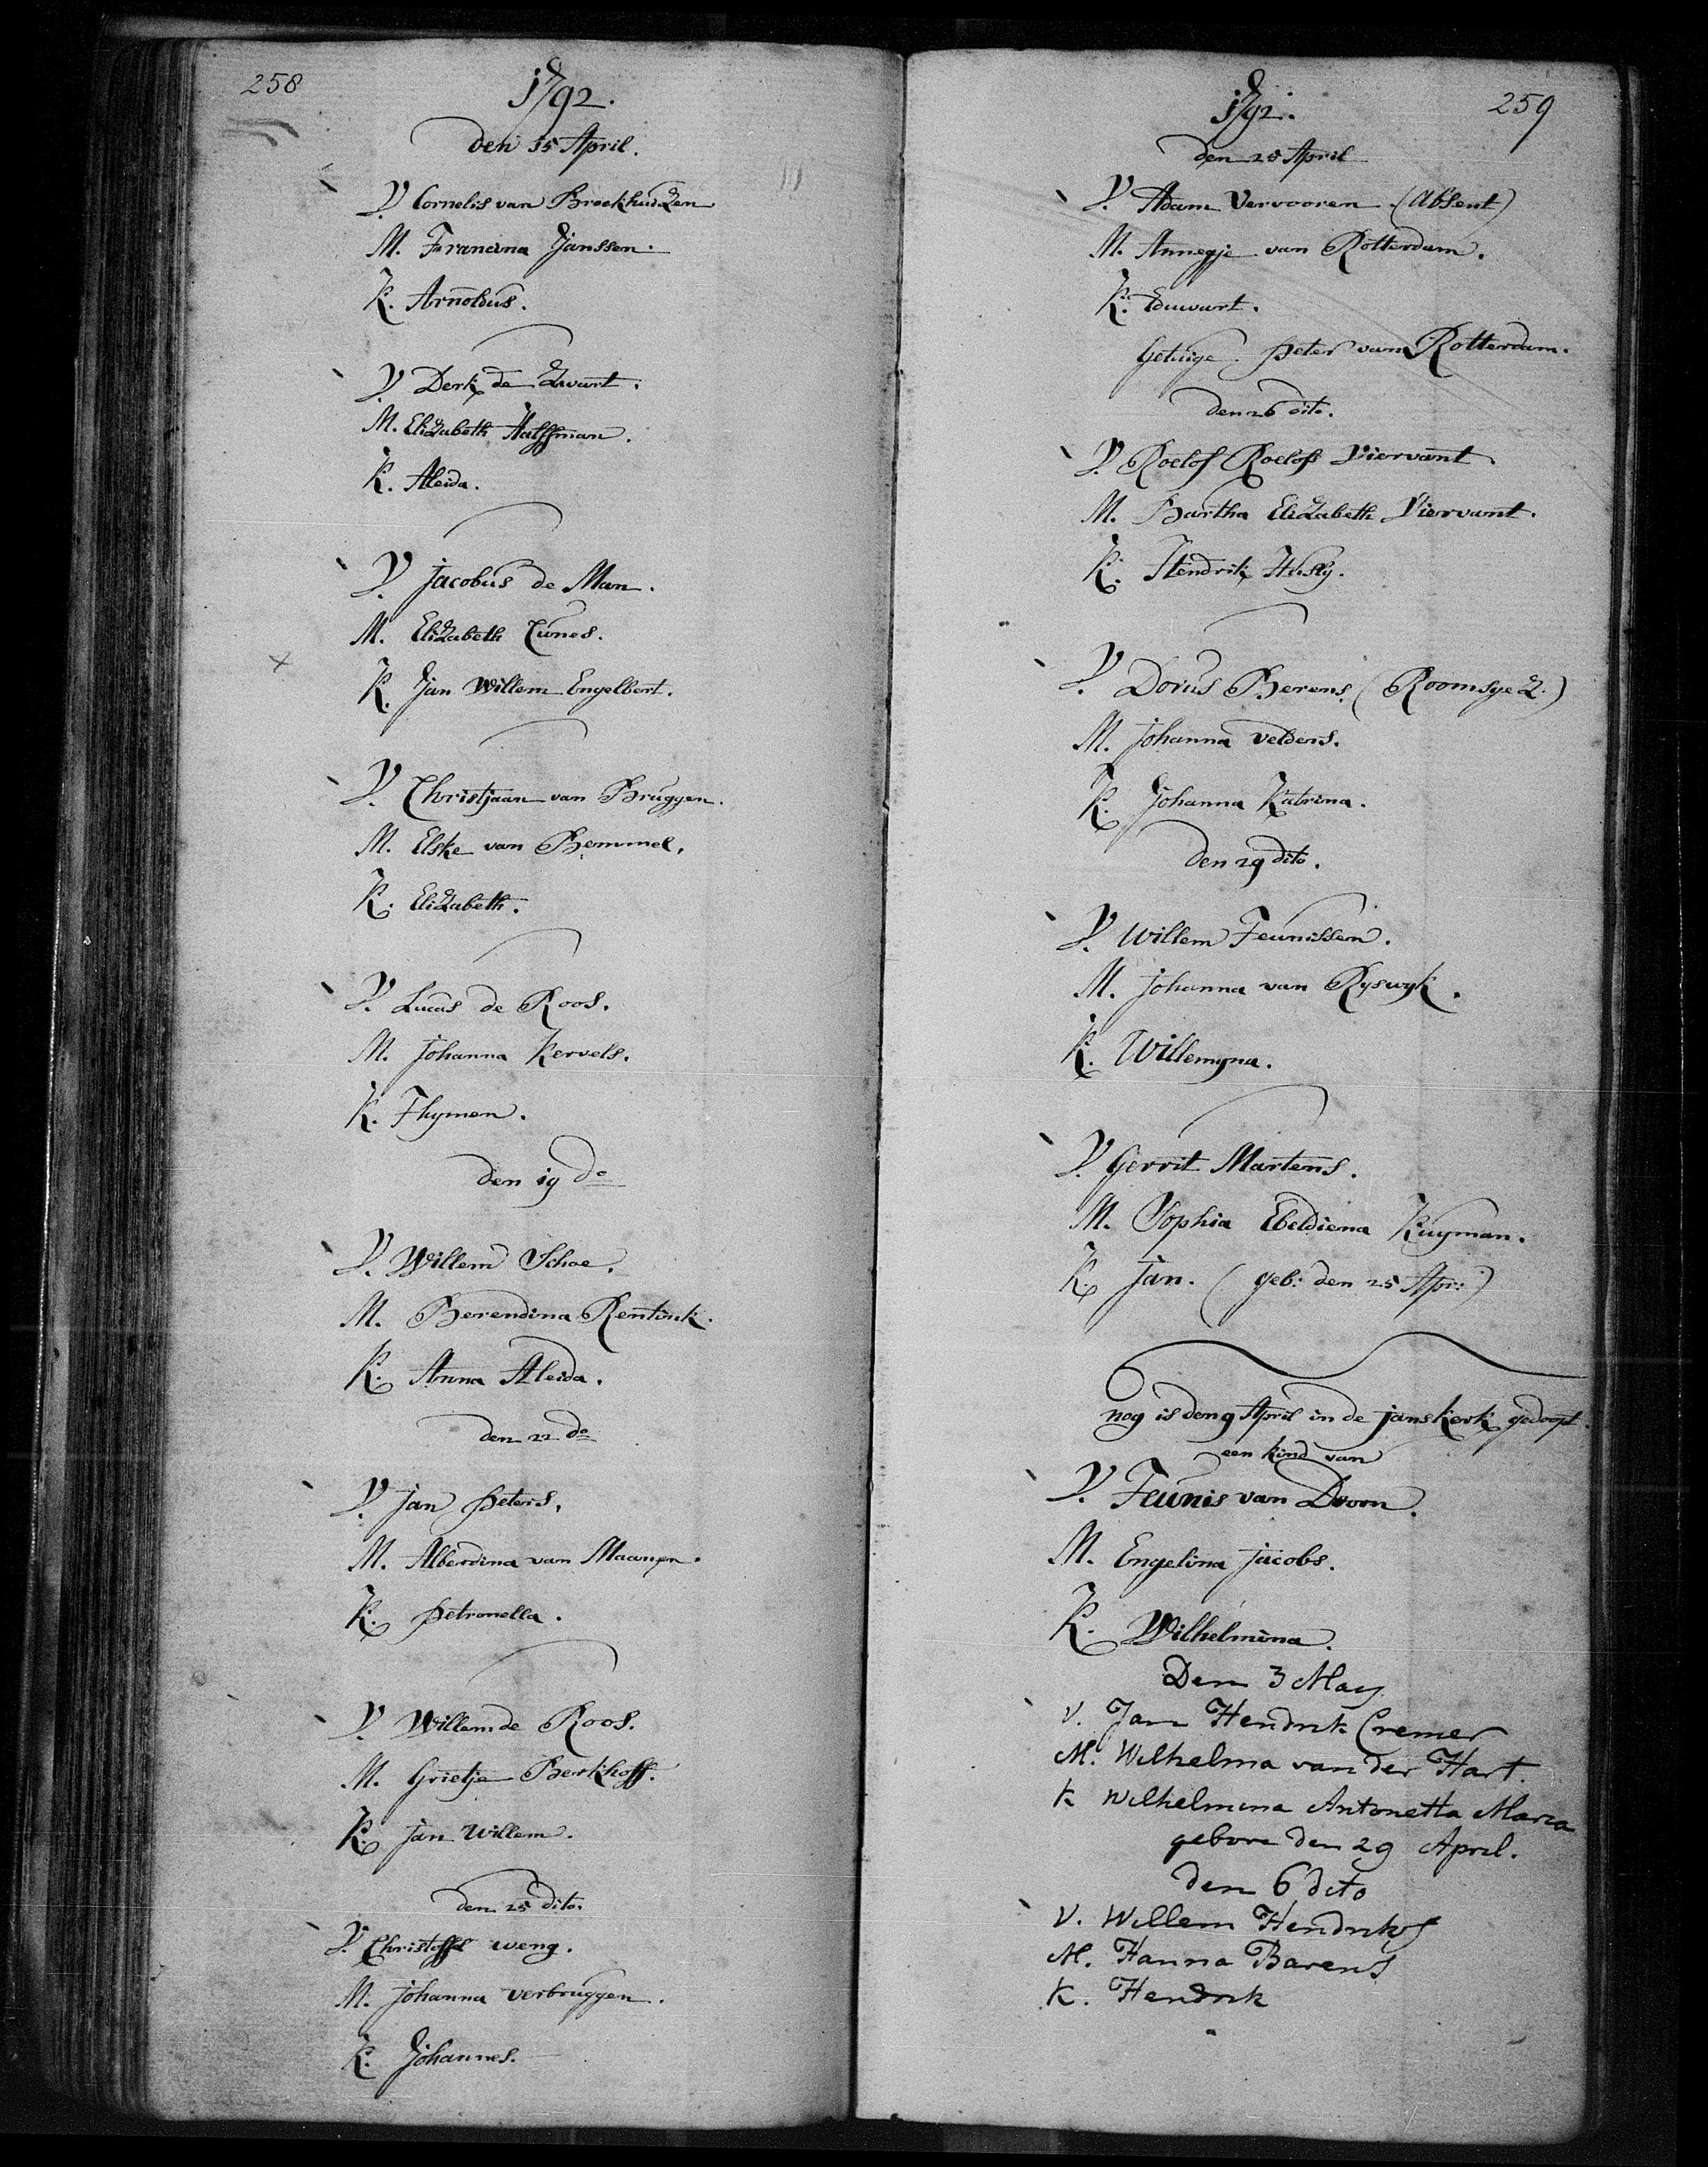 258
1792.
den 15 April.
V. Cornelis van Broekhuizen
M. Francina Janssen.
K. Arnoldus.
V. Derk de Zwart.
M. Elizabeth Halffman.
K. Aleida.
V. Jacobus de Man.
M. Elizabeth Cunes.
K. Jan Willem Engelbert.
V. Christjaan van Bruggen.
M. Elske van Bemmel.
K. Elizabeth.
V. Lucas de Roos.
M. Johanna Kervels.
K. Thymen.
den 19 do
V. Willem Schae.
M. Berendina Rentink.
K. Anna Aleida.
den 22 do
V. Jan Peters.
M. Alberdina van Maanen.
K. Petronella.
V. Willem de Roos.
M. Grietje Berkhoff.
K. Jan Willem.
den 25 dito.
V. Christoffel Weng.
M. Johanna Verbruggen.
K. Johannes.
259
1792.
den 25 April
V. Adam Vervooren (absent)
M. Annegje van Rotterdam.
K. Eduwart.
Getuige. Peter van Rotterdam.
den 26 dito.
V. Roelof Roelofs Viervant.
M. Bartha Elizabeth Viervant.
K. Hendrik Husly.
V. Dorus Berens (Roomsge Z.)
M. Johanna Veldens.
K. Johanna Katrina.
den 29 dito.
V. Willem Teunissen.
M. Johanna van Ryswyk.
K. Willemyna.
V. Gerrit Martens.
M. Sophia Ebeldiena Kuyman.
K. Jan. (geb: den 25 Apr:)
nog is den 9 April in de janskerk gedoopt.
een kind van
V. Teunis van Doorn.
M. Engelina Jacobs.
K. Wilhelmina.
Den 3 May
V. Jan Hendrik Cremer
M. Wilhelma van der Hart.
K Wilhelmina Antonetta Maria
gebore den 29 April.
den 6 dito
V. Willem Hendriks
M. Hanna Barens
K. Hendrik